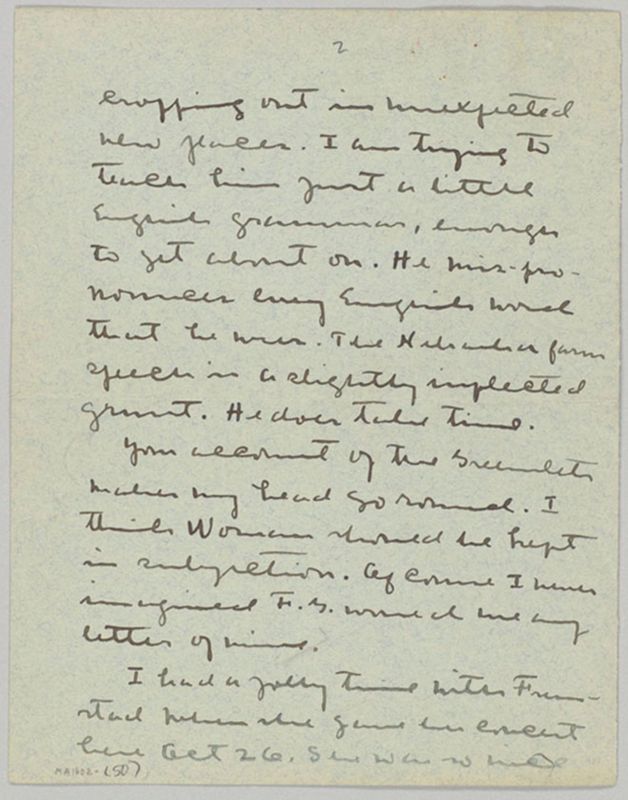 2
cropping out in unexpected
new places. I am trying to
teach him just a little
English grammar, enough
to get about on. He mis-pro-
nounces every English word
that he uses. The Nebraska farm
speech is a slightly inflected
grunt. He does take time.
Your account of the
makes my head go round. I
think Woman should be kept
in subjection. Of course I never
imagined F. G. would use any
letter of mine.
I had a jolly time with Frem-
stad when she gave her concert
here Oct 26. She was so nice
MA1602-(507)